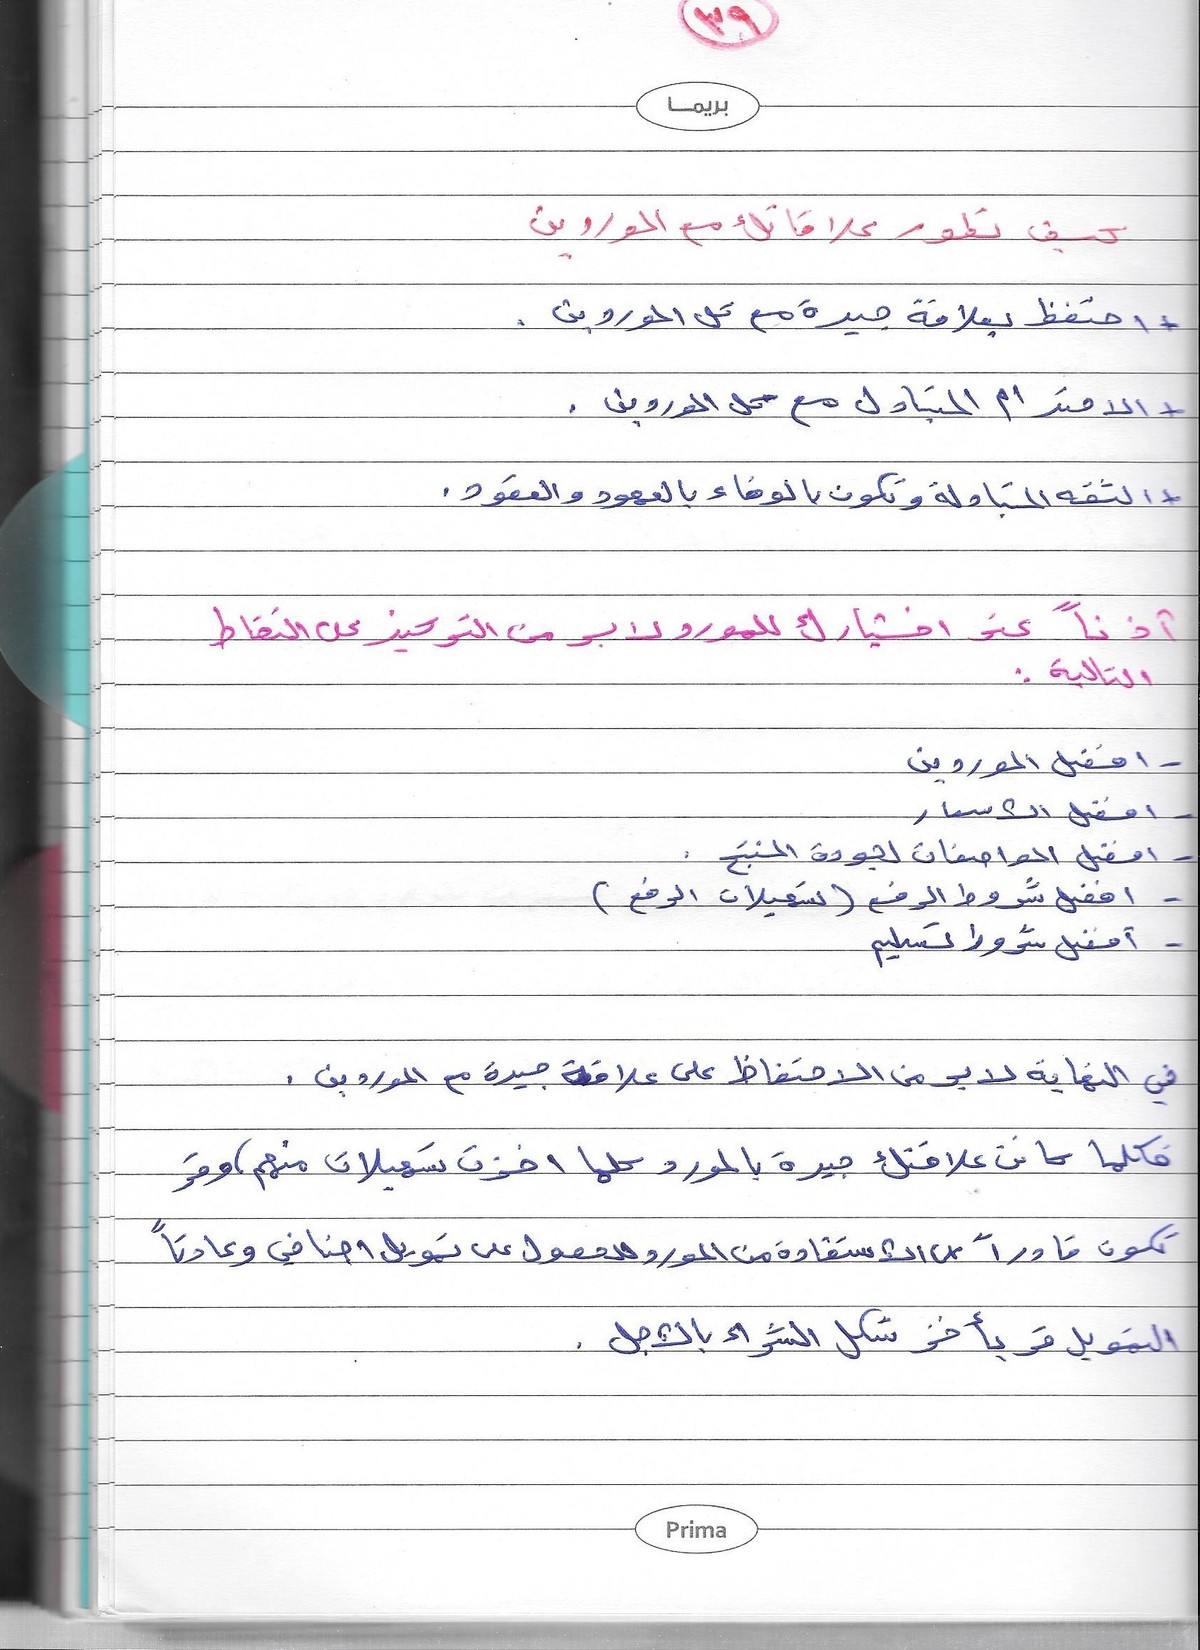 ٣٩
بريمـا
كيف تطور علاقاتك مع الموردين
+ احتفظ بعلاقة جيدة مع كل الموردين .
+ الاحترام المتبادل مع كل الموردين .
+ الثقه المتبادلة وتكون بالوفاء بالعهود والعقود .
آذناً عند اختيارك للمورد لابد من التركيز على النقاط
التالية :
- افضل الموردين
- افضل الأسعار
- افضل المواصفات لجودة المنتج .
- افضل شروط الدفع ( تسهيلات الدفع )
- أفضل شروط تسليم
في النهاية لابد من الاحتفاظ على علاقة جيدة مع الموردين .
فكلما كانت علاقتك جيدة بالمورد كلما اخذت تسهيلات منهم، وقد
تكون قادراً على الأستفادة من المورد للحصول على تمويل اضافي وعادتاً
التمويل قد يأخذ شكل الشراء بالأجل .
Prima